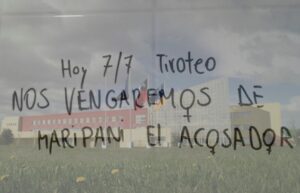 Hoy 7/7 Tiroteo
NOS VENGAREMOS DE
MARIPANI EL ACOSADOR